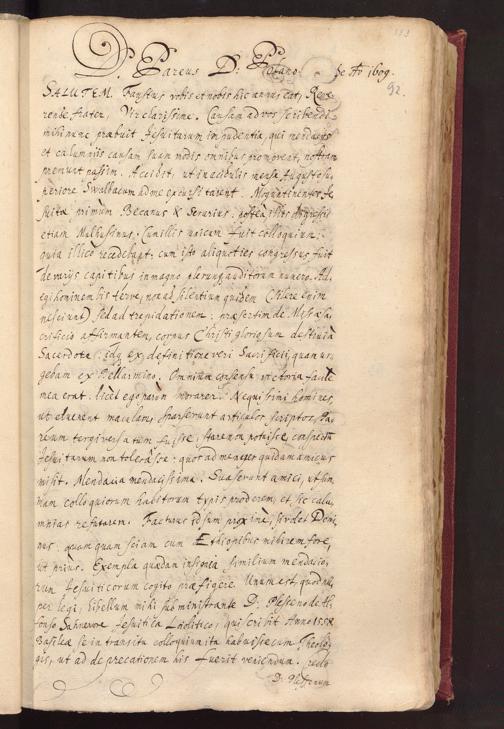 D. Pareus D. Polano. de Ao 1609.
92.
SALUTEM. Faustus vobis et nobis hic annus eat, Reve-
rende frater, Vir clarissime. Causam ad vos scribendi
mihi nunc praebuit Jesuitarum impudentia, qui mendaciis
et calumniis causam suam modis omnibus promovent, nostram
premunt passim. Accidit, ut in acidulis mense Augusto su-
periore Swalbacum ad me excursitarent Moguntinenses Je-
suitae primum Becanus & Serarius: postea illis digressis
etiam Malhusinus. Cum illis unicum fuit colloquium:
quia illico recedebant: cum isto aliquoties congressus fuit
de variis capitibus in magno plerunq auditorum numero. Ad-
egi hominem bis terve, non ad silentium quidem (silere enim
nesciunt) sed ad trepidationem: praesertim de Missae sa-
crificio affirmantem, corpus Christi gloriosum destrui à
Sacerdote: idq ex definitione veri Sacrificii, quam ur-
gebam ex Bellarmino. Omnium consensu victoria facile
mea erat: licet ego parum morarer. Nequissimi homines,
ut eluerent maculam, sparserunt articulos scriptos, Pa-
reum tergiversatum fuisse, stare non potuisse, conspectum
Jesuitarum non tolerasse: quos ad me nuper quidam amicus
misit. Mendacia mendacissima. Suaserunt amici, ut sum-
mam colloquiorum habitorum typis proderem, et sic calu-
mnias refutarem. Facturus id sum proxime, si volet Domi-
nus: quamquam sciam cum Ethiopibus mihi rem fore,
ut prius. Exempla quaedam insignia similium mendacio-
rum Jesuiticorum cogito praefigere. Unum est, quod nu-
per legi, libellum mihi subministrante D. Plesseno de Al-
fonso Jesuitica qui scribit Anno 1598
Basileae se in transitu colloquium ita habuisse cum Theolo-
gis, ut ad deprecationem his fuerit veniendum.
D. Plessenum